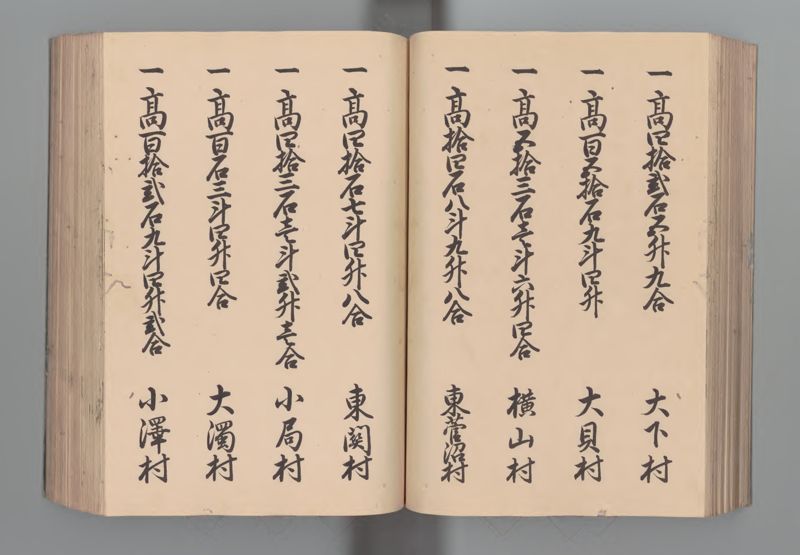 一高四拾弐石五升九合 大下村
一高百五拾石九斗四升 大貝村
一高五拾三石壱斗六升四合 横山村
一高拾四石八斗九升八合 東菅沼村
一高四拾石七斗四升八合 東関村
一高四拾三石壱斗弐升壱合 小局村
一高百石三斗四升四合 大濁村
一高百拾弐石九斗四升弐合 小澤村